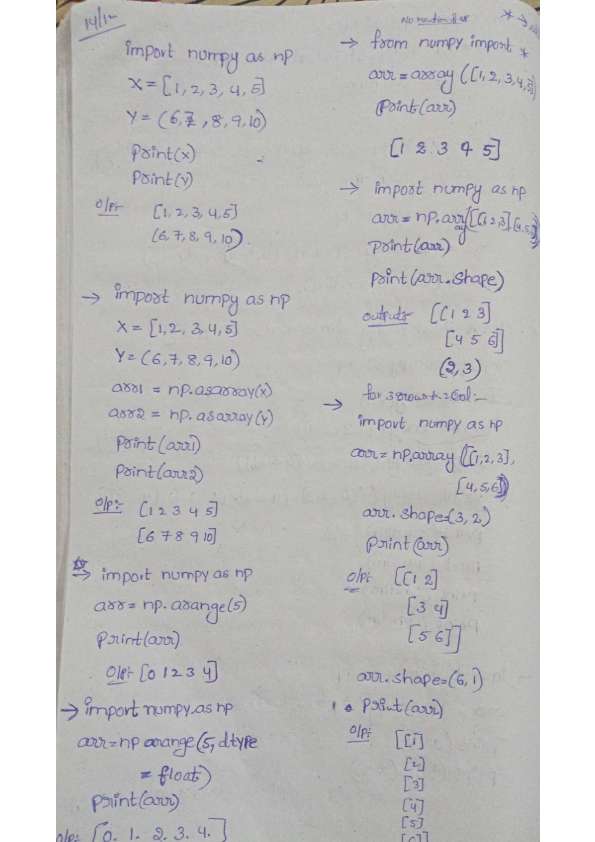 14/12
import numpy as np
X = [1, 2, 3, 4, 5]
Y = (6, 7, 8, 9, 10)
Print(x)
Print(y)
o/p:-
[1, 2, 3, 4, 5]
(6, 7, 8, 9, 10).
→ import numpy as np
X = [1, 2, 3, 4, 5]
Y = (6, 7, 8, 9, 10)
arr1 = np.asarray(x)
arr2 = np.asarray(y)
Print(arr1)
Print(arr2)
o/p:- [1 2 3 4 5]
[6 7 8 9 10]
→ import numpy as np
arr = np.arange(5)
Print(arr)
o/p:- [0 1 2 3 4]
→ import numpy as np
arr = np arange(5, dtype
= float)
Print(arr)
o/p: [0. 1. 2. 3. 4.]
* →
→ from numpy import *
arr = array([1, 2, 3, 4, 5])
Print(arr)
[1 2 3 4 5]
→ import numpy as np
arr = np.array([[1 2 3], [4, 5, 6]])
Print(arr)
Print(arr.shape)
output:- [[1 2 3]
[4 5 6]]
(2, 3)
→ for 3 row & 2 Col:-
import numpy as np
arr = np.array([[1, 2, 3],
[4, 5, 6]])
arr.shape=(3, 2)
Print(arr)
o/p:- [[1 2]
[3 4]
[5 6]]
arr.shape=(6, 1)
Print(arr)
o/p:- [[1]
[2]
[3]
[4]
[5]
[6]]